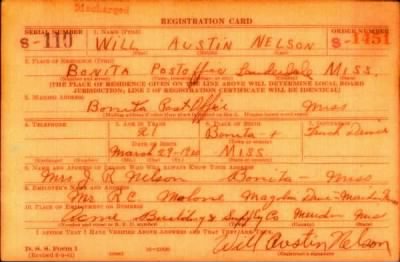 Discharged
REGISTRATION CARD
SERIAL NUMBER 1. NAME (Print) ORDER NUMBER
S-119 WILL AUSTIN NELSON S-1451
2. PLACE OF RESIDENCE (Print)
BONITA Postoffice Lauderdale MISS.
(THE PLACE OF RESIDENCE GIVEN ON THE LINE ABOVE WILL DETERMINE LOCAL BOARD
JURISDICTION; LINE 2 OF REGISTRATION CERTIFICATE WILL BE IDENTICAL)
3. MAILING ADDRESS
Bonita Postoffice Miss
4. TELEPHONE 5. AGE IN YEARS 6. PLACE OF BIRTH 7. OCCUPATION
21 Bonita Truck Driver
DATE OF BIRTH
March 29-1920 MISS
8. NAME AND ADDRESS OF PERSON WHO WILL ALWAYS KNOW YOUR ADDRESS
Mrs J. R. Nelson Bonita - Miss
9. EMPLOYER'S NAME AND ADDRESS
Mr R C Malone
10. PLACE OF EMPLOYMENT OR BUSINESS
Acme Building & Supply Co Meridian Miss
I AFFIRM THAT I HAVE VERIFIED ABOVE ANSWERS AND THAT THEY ARE TRUE.
D. S. S. Form 1
Will Austin Nelson